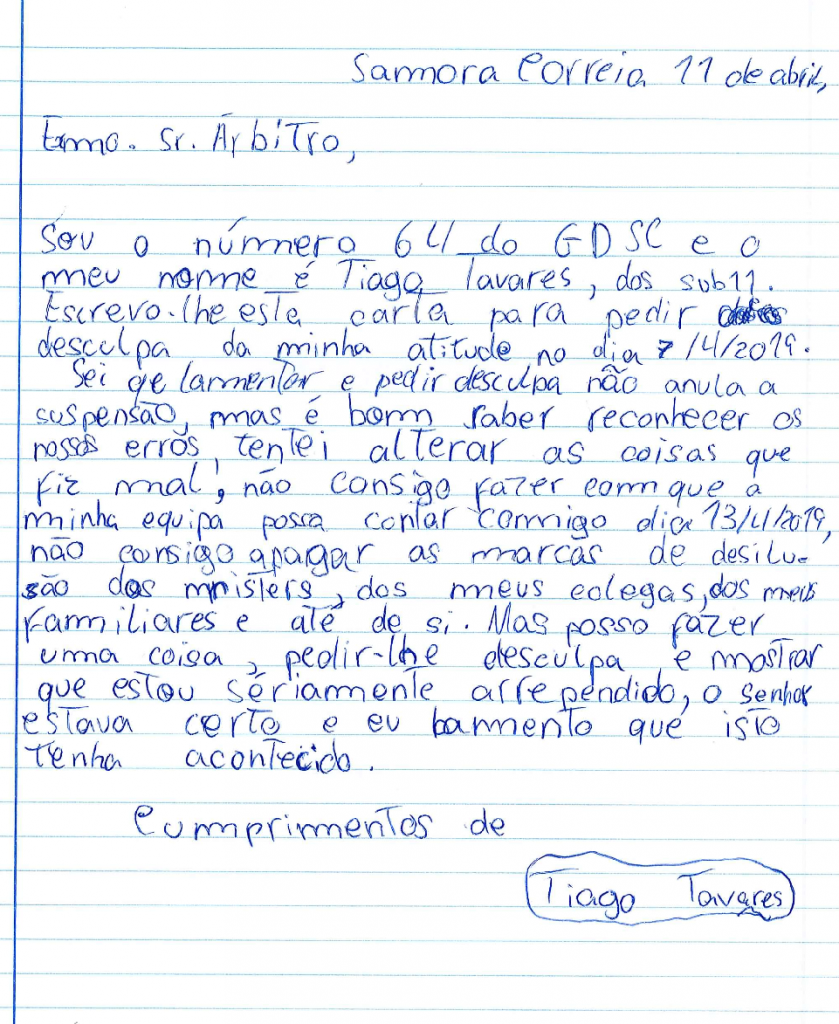 Samora Correia 11 de abril,
Exmo. Sr. Árbitro,
Sou o número 64 do GDSC e o
meu nome é Tiago Tavares, dos sub11.
Escrevo-lhe esta carta para pedir
desculpa da minha atitude no dia 7/4/2019.
Sei qe lamentar e pedir desculpa não anula a
suspensão, mas é bom saber reconhecer os
nossos erros, tentei alterar as coisas que
fiz mal, não consigo fazer com que a
minha equipa possa contar comigo dia 13/4/2019,
não consigo apagar as marcas de desilu-
são dos misters, dos meus colegas, dos meus
familiares e até de si. Mas posso fazer
uma coisa, pedir-lhe desculpa e mostrar
que estou sériamente arrependido, o senhor
estava certo e eu lamento que isto
tenha acontecido.
Cumprimentos de
Tiago Tavares